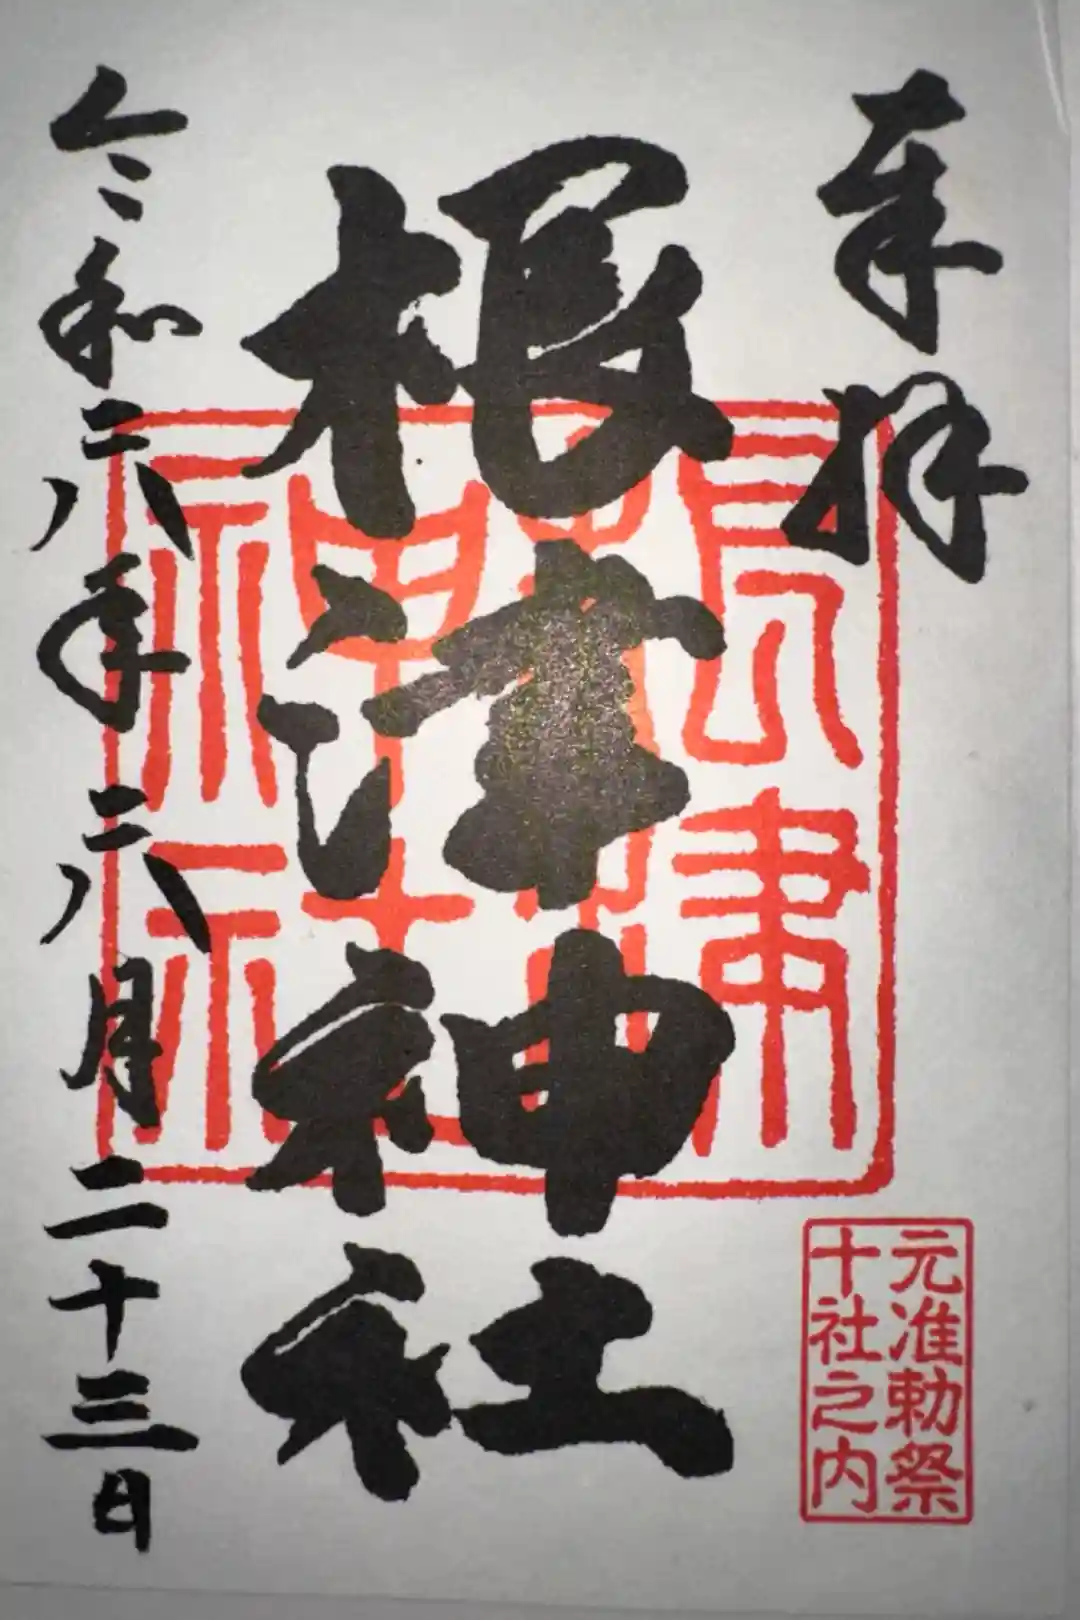 奉拝
根津神社
令和六年六月二十三日
根津
神社
元准勅祭
十社之内